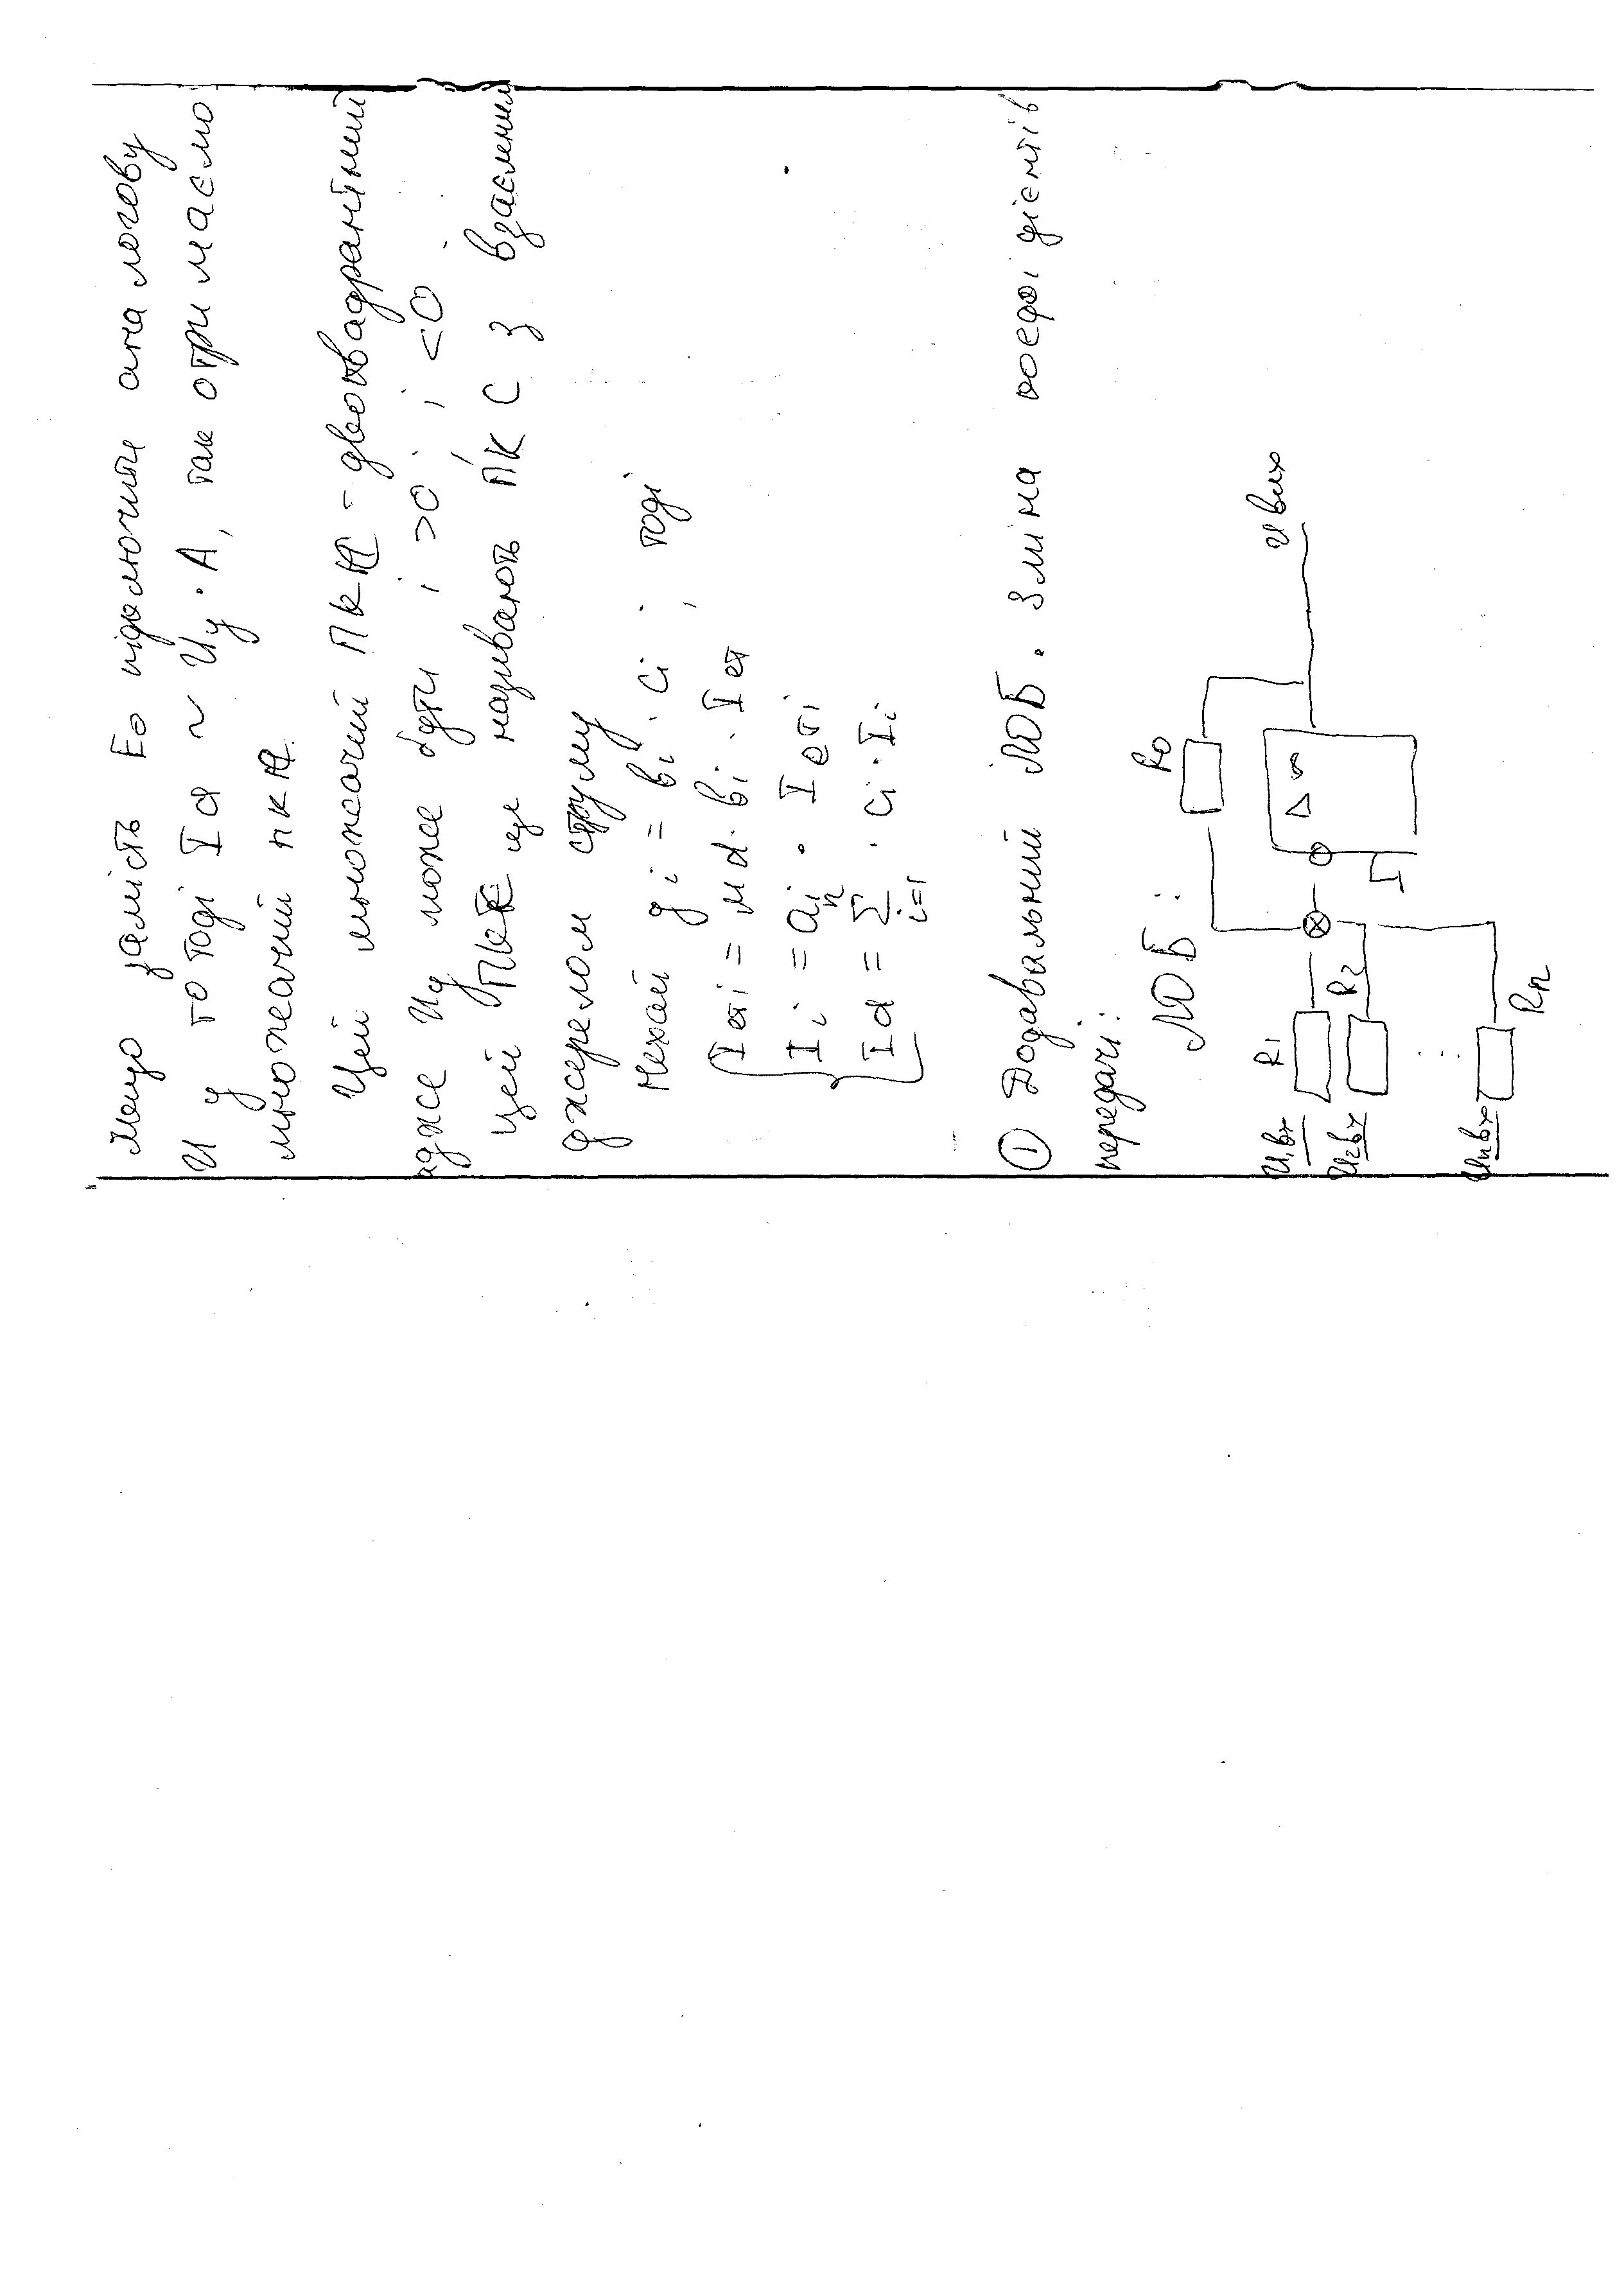 Якщо замість E0 підключити аналогову
Uy то тоді Id ~ Uy · A, так отримаємо
множачий ПКН.
Цей множачий ПКН - двоквадрантний
адже Uy може бути і >0 і <0
цей ще називають ПКС з взаємним
джерелом струму
Нехай gi = bi · ci, тоді
Iетi = Md · bi · Iет
Ii = ai · Iетi
Id = n Σ i=1 · ci · Ii
① Додавальний ЛОБ. Зміна коефіцієнтів
передачі:
ЛОБ:
R0
U вих
▷ ∞
U1вх R1
U2вх R2
⋮
Unвх Rn